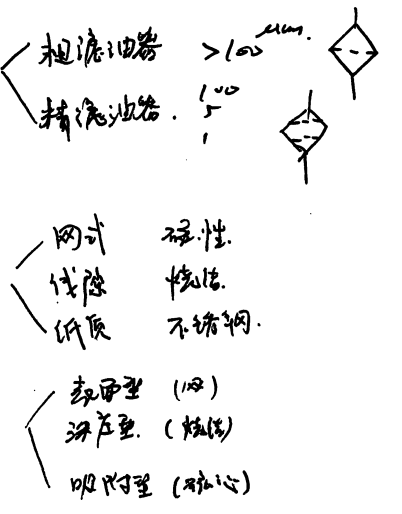 粗滤油器 >100 μm.
精滤油器. 100
5
1
网式 磁性.
线隙 烧结.
纸质 不锈钢.
表面型 (网)
深度型. (烧结)
吸附型 (磁心)